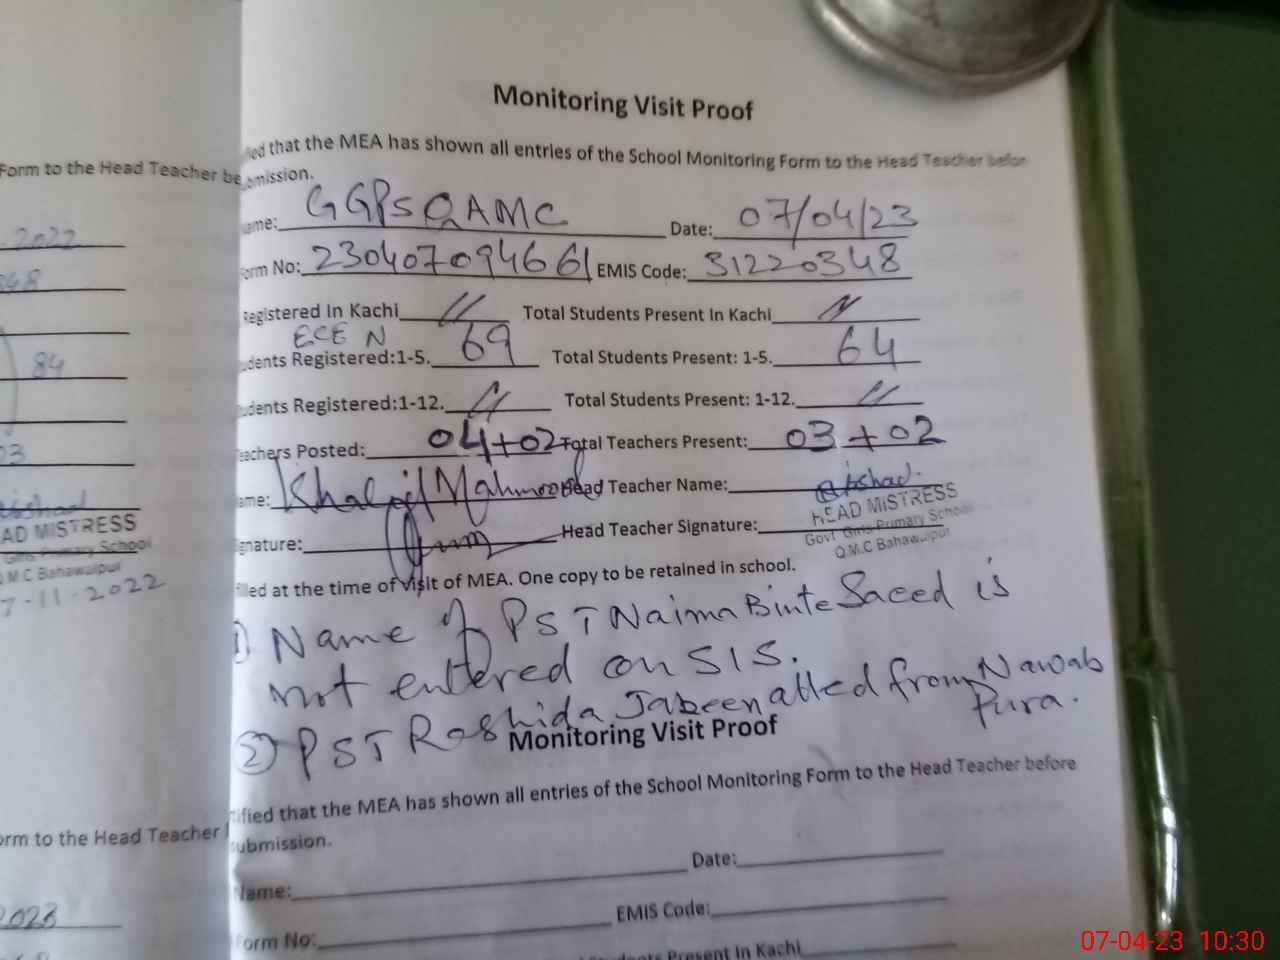 Monitoring Visit Proof
fied that the MEA has shown all entries of the School Monitoring Form to the Head Teacher befor
omission.
ame: GGPS QAMC Date: 07/04/23
orm No: 230407094661 EMIS Code: 31220348
Registered In Kachi // Total Students Present In Kachi //
ECE N
udents Registered:1-5. 69 Total Students Present: 1-5. 64
udents Registered:1-12. // Total Students Present: 1-12. //
eachers Posted: 04+02 Total Teachers Present: 03+02
ame: Khalid Mahmood Head Teacher Name:
gnature: Head Teacher Signature:
HEAD MISTRESS
Govt Girls Primary School
Q.M.C Bahawalpur
filled at the time of visit of MEA. One copy to be retained in school.
1) Name of PST Naima Binte Saeed is
not entered on SIS.
2) PST Rashida Jabeen atted from Nawab
Pura.
Monitoring Visit Proof
tified that the MEA has shown all entries of the School Monitoring Form to the Head Teacher before
submission.
Name: Date:
Form No: EMIS Code:
Students Present In Kachi
Form to the Head Teacher be
2022
84
03
EAD MISTRESS
Girls Primary School
M.C Bahawalpur
7-11-2022
orm to the Head Teacher
2023
07-04-23 10:30